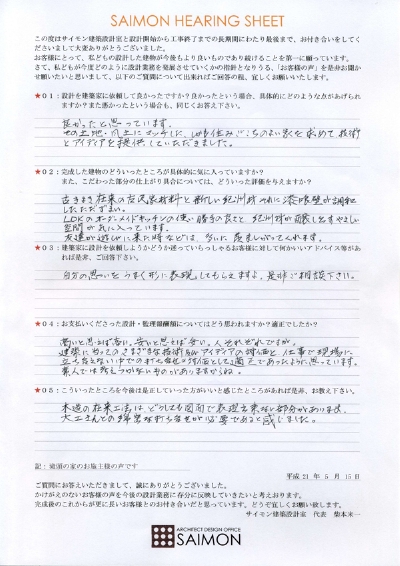 SAIMON HEARING SHEET
この度はサイモン建築設計室と設計開始から工事終了までの長期間にわたり最後まで、お付き合いをしてく
ださいまして大変ありがとうございました。
お客様にとって、私どもの設計した建物が今後もより良いものであり続けることを第一に願っています。
さて、私どもが今度どのように設計業務を発展させていくかの指針となりうる、「お客様の声」を是非お聞か
せ願いたいと思いまして、以下のご質問について出来ればご回答の程、宜しくお願いいたします。
★01:設計を建築家に依頼して良かったですか?良かったという場合、具体的にどのような点があげられ
ますか?また悪かったという場合も、同じくお答え下さい。
良かったと思っています。
その土地・風土にマッチした、しかも住みごこちのよい家を求めて技術
とアイデアを提供していただきました。
★02:完成した建物のどういったところが具体的に気に入っていますか?
また、こだわった部分の仕上がり具合については、どういった評価を与えますか?
古きよき在来の古民家材料と新しい紀州材 それに漆喰壁が調和
したたたずまい。
LDKのオーダーメイドキッチンの使い勝手の良さと 紀州材が醸し出すやさしい
空間が気に入っています。
友達が遊びに来た時などは、多いに 羨ましがってくれます。
★03:建築家に設計を依頼しようかどうか迷っていらっしゃるお客様に対して何かいいアドバイス等があ
れば是非、ご回答下さい。
自分の思いを うまく形に表現してもらえますよ。是非ご相談下さい。
★04:お支払いくださった設計・監理報酬額についてはどう思われますか?適正でしたか?
高いと思えば高い。安いと思えば安い。人それぞれですが。
建築に当ってのさまざまな技術及びアイデアの対価と 仕事で現場に
立ち会えない中での打ち合せの対価として適正であったように思っています。
素人では考えつかないものがありますからね。
★05:こういったところを今後は是正していった方がいいと感じたところがあれば是非、お教え下さい。
木造の在来工法は どうしても図面で表現出来ない部分があります。
大工さんとの綿密な打ち合せが必要であると感じました。
記:歳頭の家のお施主様の声です
平成 21 年 5 月 15日
ご質問にお答えいただきまして、誠にありがとうございました。
かけがえのないお客様の声を今後の設計業務に存分に反映していきたいと考えております。
完成後のこれからが更に長いお客様とのお付き合いだと思っています。どうぞ宜しくお願い致します。
サイモン建築設計室 代表 柴本米一
ARCHITECT DESIGN OFFICE
SAIMON